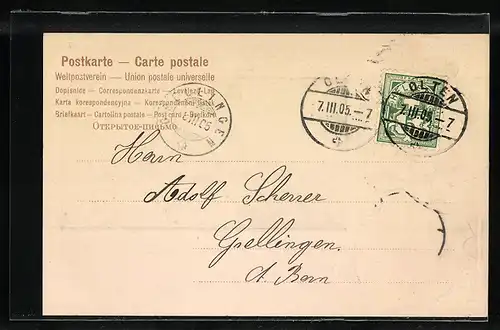 Postkarte – Carte postale
Weltpostverein – Union postale universelle
Dopisnice – Correspondenzkarte – Levelező-Lap
Karta korespondencyjna – Korespondenční lístek
Briefkaart – Cartolina postale – Post card – Brefkort
Открытое письмо
OLTEN
7.III.05.–7
OLTEN
7.III.05.–7
Herrn
Adolf Scherrer
Grellingen.
Ct. Bern